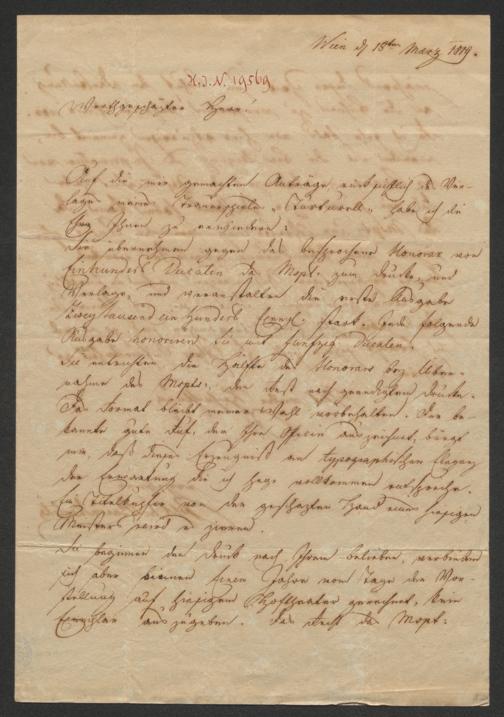 Wien d 18ten März 1819.
H. I. N. 19569
Werthgeschäzter Herr!
Auf die mir gemachten Anträge rücksichtlich des Ver-
lages meines Trauerspieles „ " habe ich die
Ehre Ihnen zu erwiedern:
Sie übernehmen gegen das besprochene Honorar von
Einhundert Ducaten das Mspt: zum Drucke und
Verlage, und veranstalten die erste Ausgabe
Zwey Tausend ein Hundert Exempl. stark. Jede folgende
Ausgabe honoriren Sie mit fünfzig Ducaten.
Sie entrichten die Hälfte des Honorars bey Über-
nahme des Mspts:, den Rest nach geendigtem Drucke.
Das Format bleibt meiner Wahl vorbehalten. Der be-
kannte gute Ruf, der Ihre Officin auszeichnet, bürgt
mir, daß dieses Erzeugniß an typographischer Eleganz
der Erwartung die ich hege vollkommen entspreche.
Ein Titelkupfer von der geschäzten Hand eines hiesigen
Meisters wird es zieren.
Sie beginnen den Druck nach Ihrem belieben, verbinden
sich aber binnen Einem Jahre vom Tage der Vor-
stellung auf hiesigem Hoftheater gerechnet, kein
Exemplar auszugeben. Das Recht das Mspt: